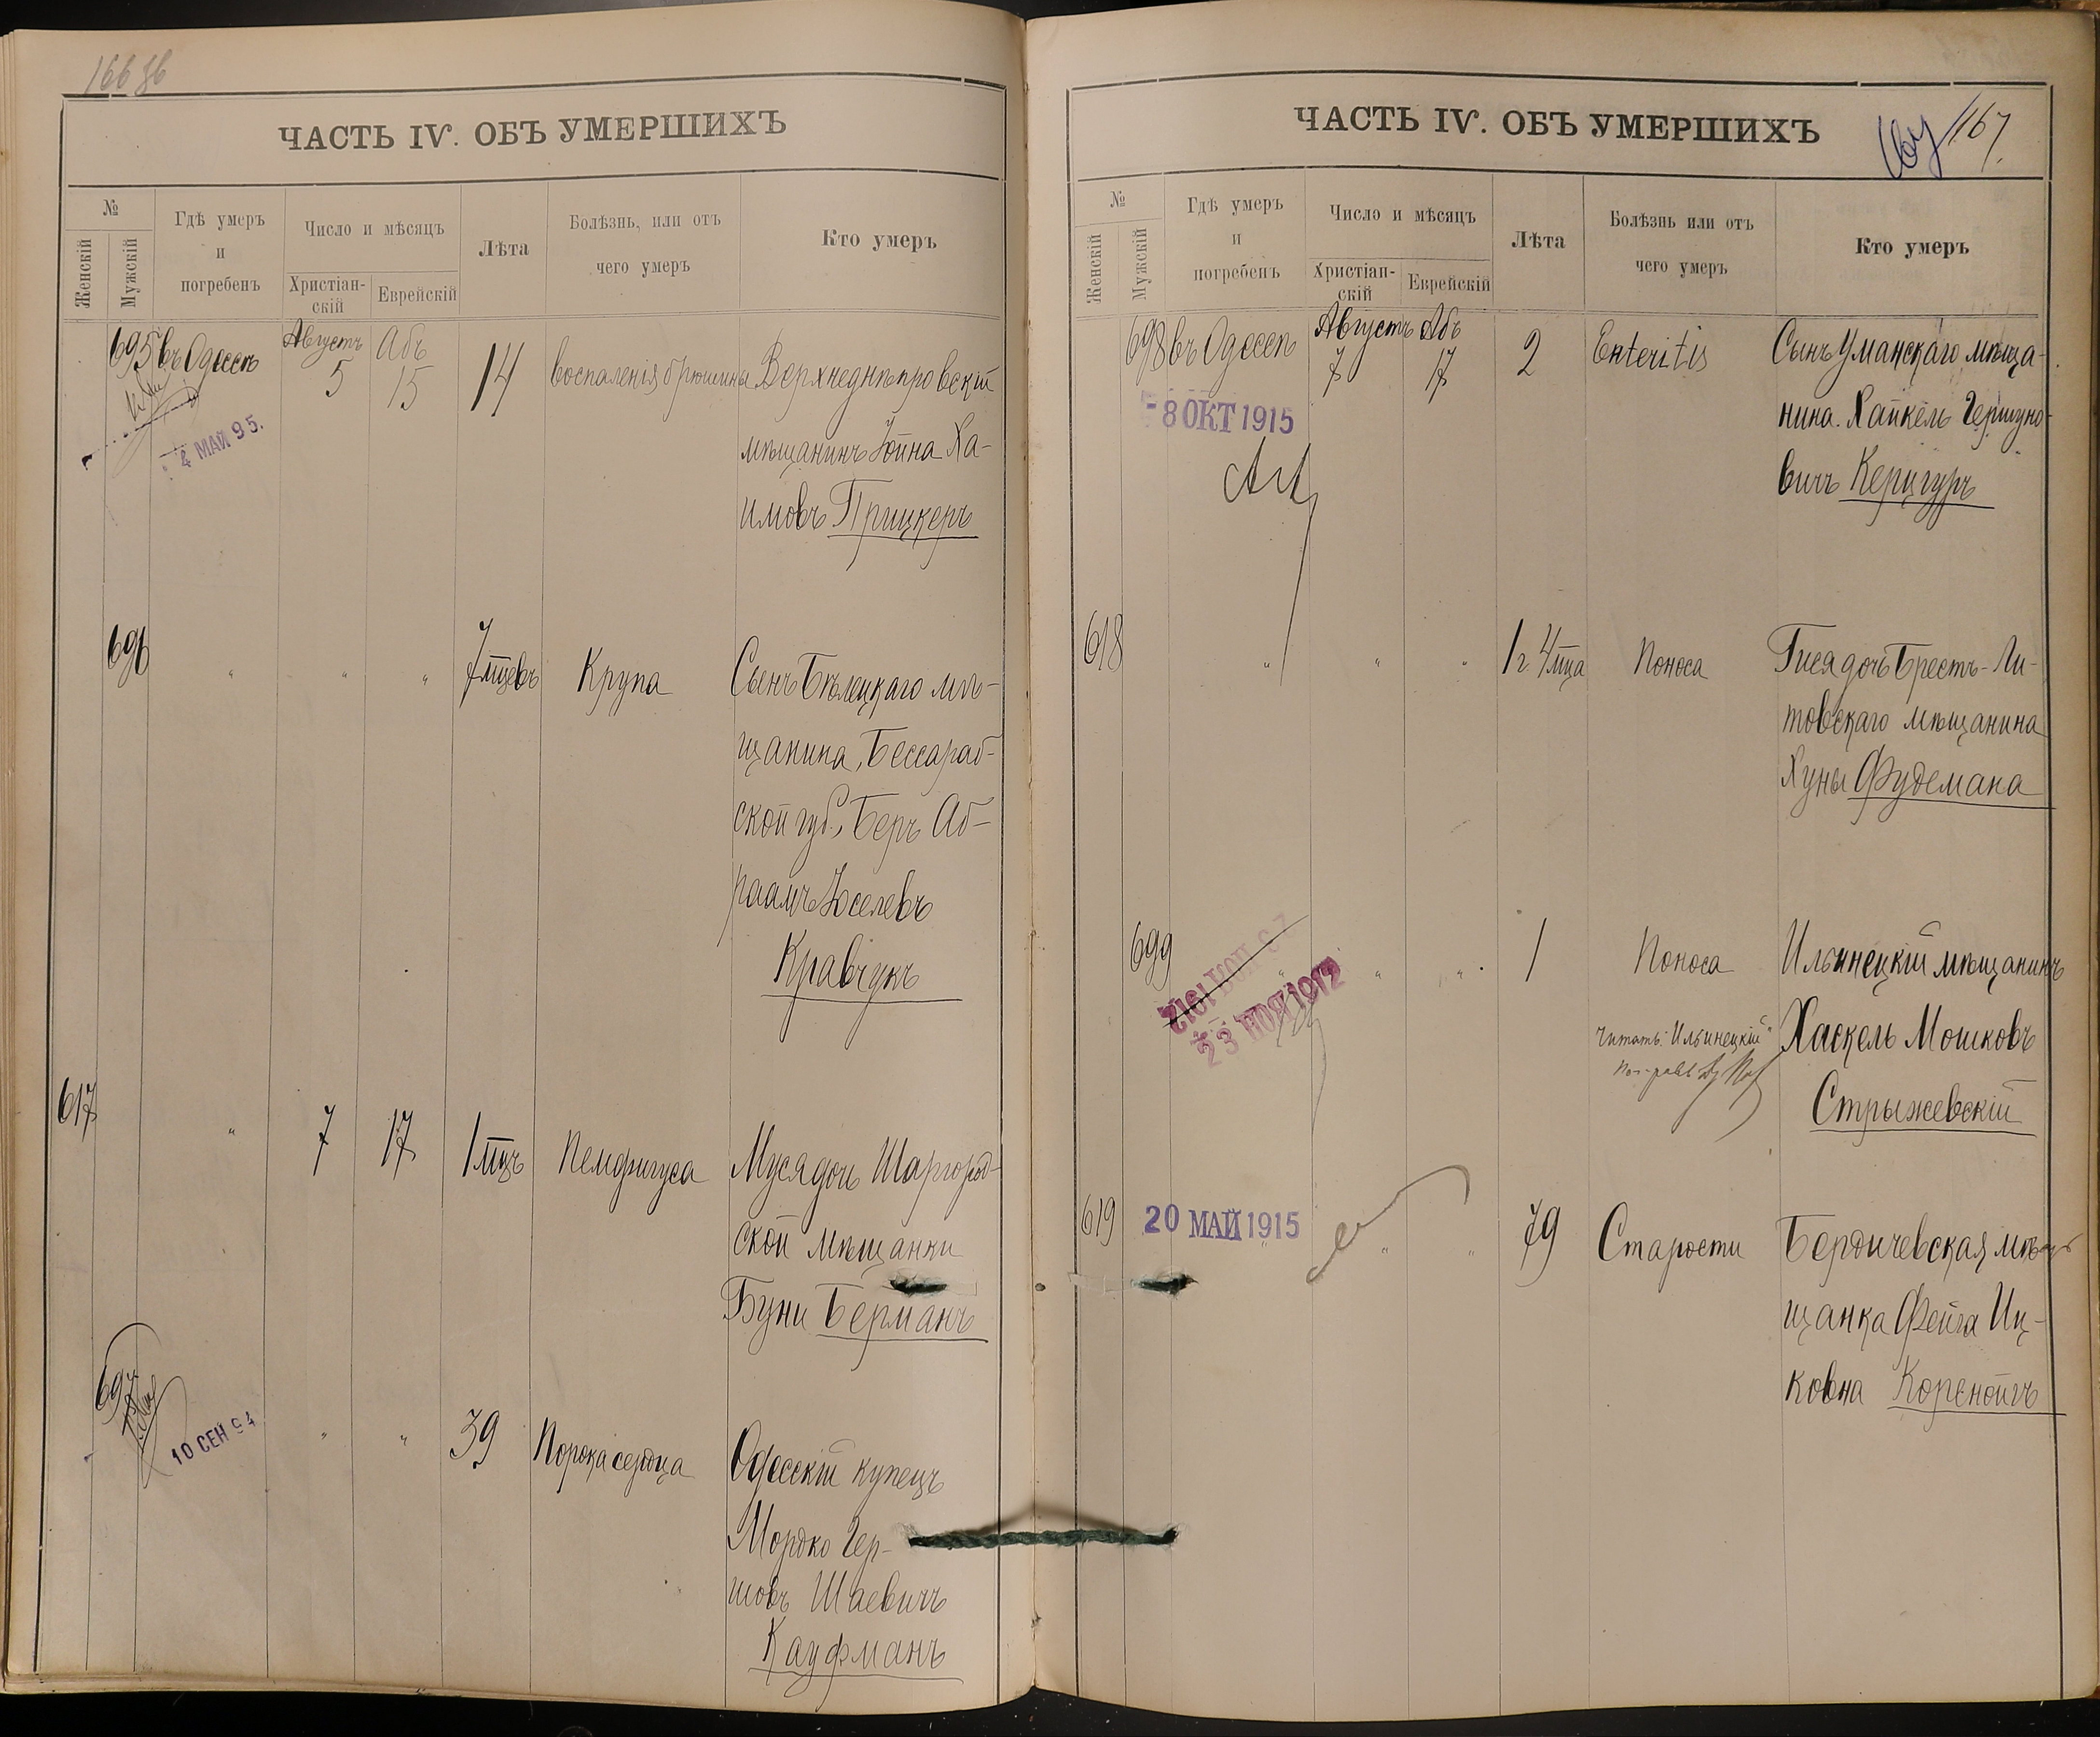 166 об
ЧАСТЬ IV. ОБЪ УМЕРШИХЪ
№
Женскій
Мужскій
Гдѣ умеръ
и
погребенъ
Число и мѣсяцъ
Христіан-
скій
Еврейскій
Лѣта
Болѣзнь, или отъ
чего умеръ
Кто умеръ
695 въ Одессѣ Августъ 5 Абъ 15 14 воспаленія брюшины Верхнеднѣпровскій
мѣщанинъ Іойна Ха-
имовъ Прицкеръ
4 МАЙ 95.
696 " " " 7 мцевъ Крупа Сынъ Бѣлецкаго мѣ-
щанина, Бессараб-
ской губ., Беръ Аб-
раамъ Іоселевъ
Кравчукъ
617 " 7 17 1 мцъ Пемфигуса Муся дочь Шаргород-
ской мѣщанки
Буни Берманъ
697 " " 39 Порока сердца Одесскій купецъ
10 СЕН 94
Мордко Гер-
шовъ Шаевичъ
Кауфманъ
ЧАСТЬ IV. ОБЪ УМЕРШИХЪ
167
167.
№
Женскій
Мужскій
Гдѣ умеръ
и
погребенъ
Число и мѣсяцъ
Христіан-
скій
Еврейскій
Лѣта
Болѣзнь или отъ
чего умеръ
Кто умеръ
698 въ Одессѣ Августъ 7 Абъ 17 2 Enteritis Сынъ Уманскаго мѣща-
нина Хайкель Гершуно-
вичъ Керцгуръ
- 8 ОКТ 1915
618 " " " 1 г. 4 мца Поноса Гися дочь Брестъ-Ли-
товскаго мѣщанина
Хуны Фудемана
699 " " " 1 Поноса Ильинецкій мѣщанинъ
23 НОЯ 1912
23 НОЯ 1912
Читать "Ильинецкій"
Хаскель Мошковъ
Стрыжевскій
619 20 МАЙ 1915 " " " 79 Старости Бердичевская мѣ-
щанка Фейга Иц-
ковна Коренойгъ